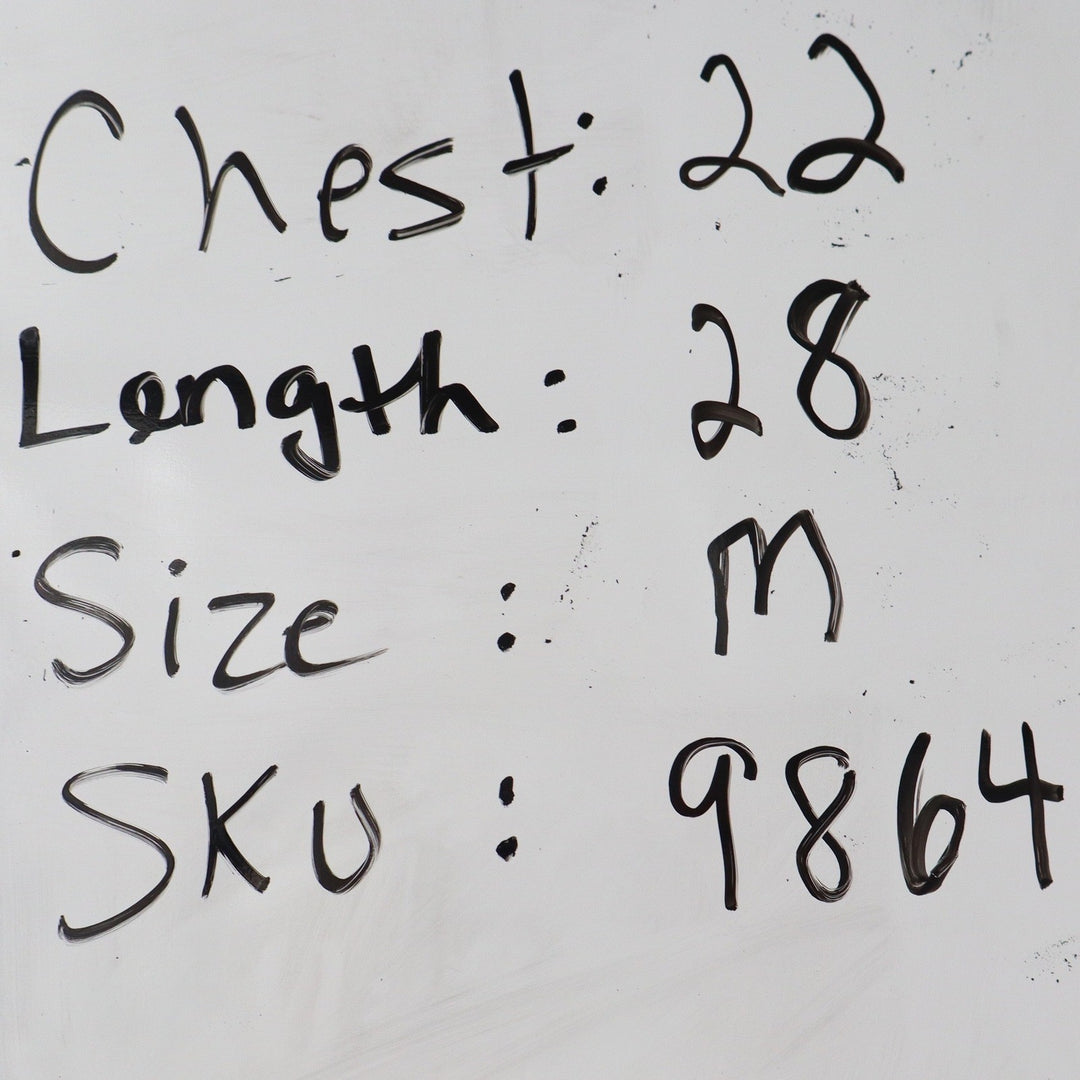 Chest: 22
Length: 28
Size: M
SKU: 9864